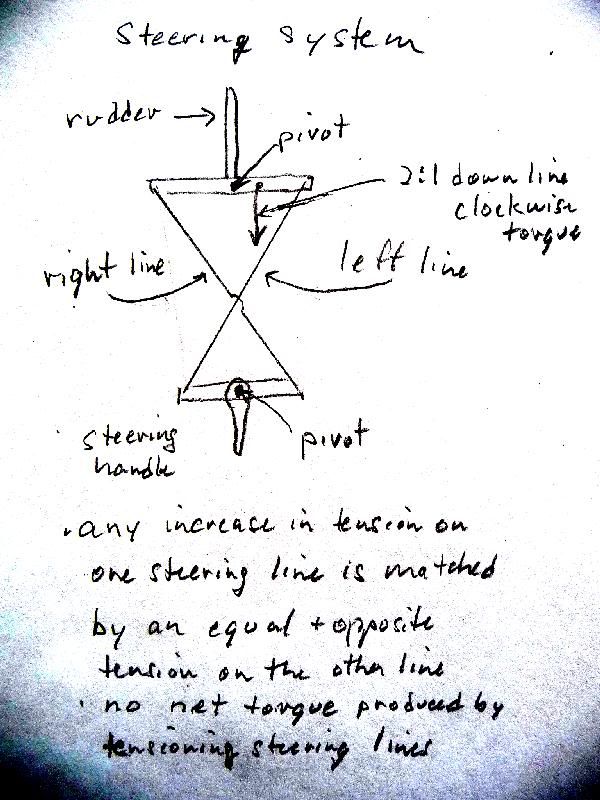 Steering System
rudder
pivot
2:1 down line
clockwise
torque
right line
left line
steering
handle
pivot
. any increase in tension on
one steering line is matched
by an equal + opposite
tension on the other line
. no net torque produced by
tensioning steering lines